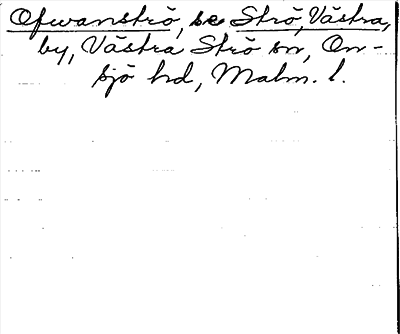 Ofvanströ, se Strö, Västra,
by, Västra Strö sn, On-
sjö hd, Malm. l.